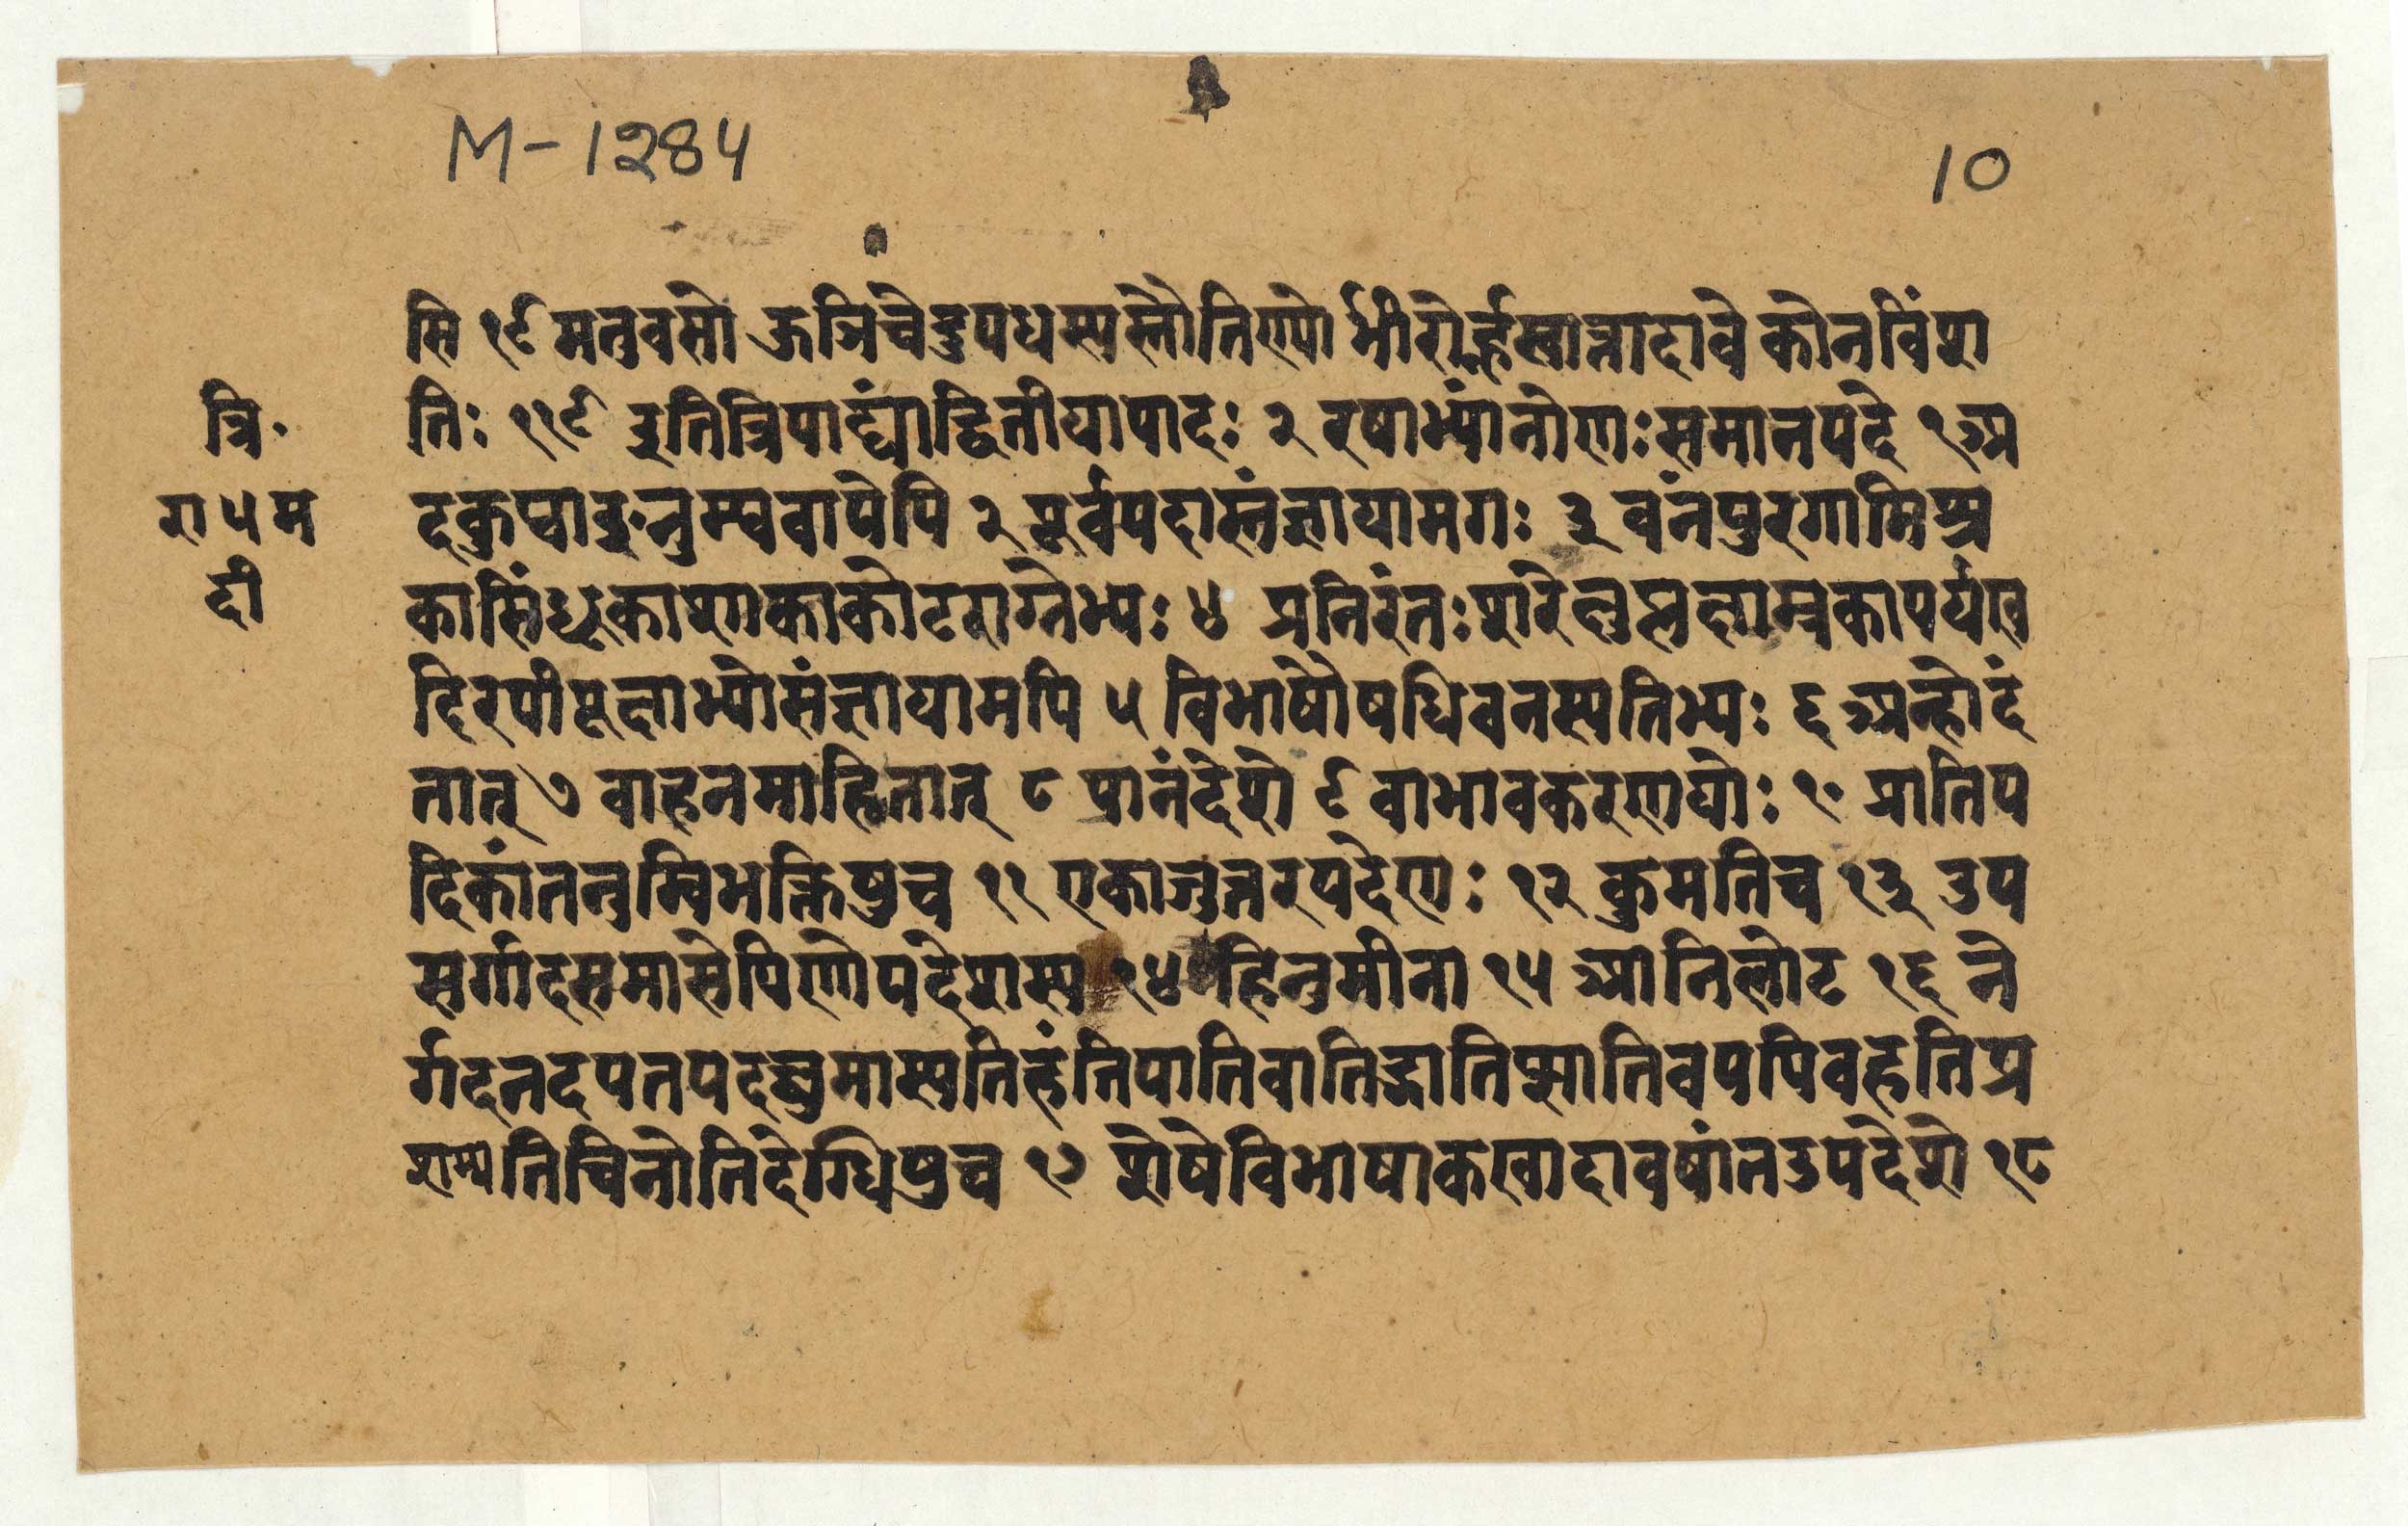 M-1284
10
सि १९ मतुवसो ऊञिचेदुपधस्यस्तौतिण्योर्भीरोर्ह्रस्वात्तादावेकोनविंशा
त्रि॰
तिः १९ इतित्रिपाद्यांद्वितीयापादः २ रषाभ्यांनोणःसमानपदे १ अ
ग ५ म
ट्कुप्वाङ्नुम्व्यवायेपि २ पूर्वपदात्संज्ञायामगः ३ वंनपुरगामिश्र
दी
कासिंध्रूकाशाकाकोटराग्नेभ्यः ४ प्रनिरंतःशरेक्षुप्लक्षाम्रकार्ष्यख
दिरपीयूक्षाभ्योसंज्ञायामपि ५ विभाषौषधिवनस्पतिभ्यः ६ अन्होदं
तात् ७ वाहनमाहितात् ८ पानंदेशे ९ वाभावकरणयोः १० प्रातिप
दिकांतनुम्विभक्तिषुच ११ एकाजुत्तरपदेणः १२ कुमतिच १३ उप
सर्गादसमासेपिणोपदेशस्य १४ हिनुमीना १५ आनिलोट १६ ने
र्गदनदपतपदघुमास्यतिहंतियातिवातिद्रातिप्सातिवपपिवहतिप्र
शाम्यतिचिनोतिदेग्धिषुच १७ शेषेविभाषाकखादावषांतउपदेशे १८